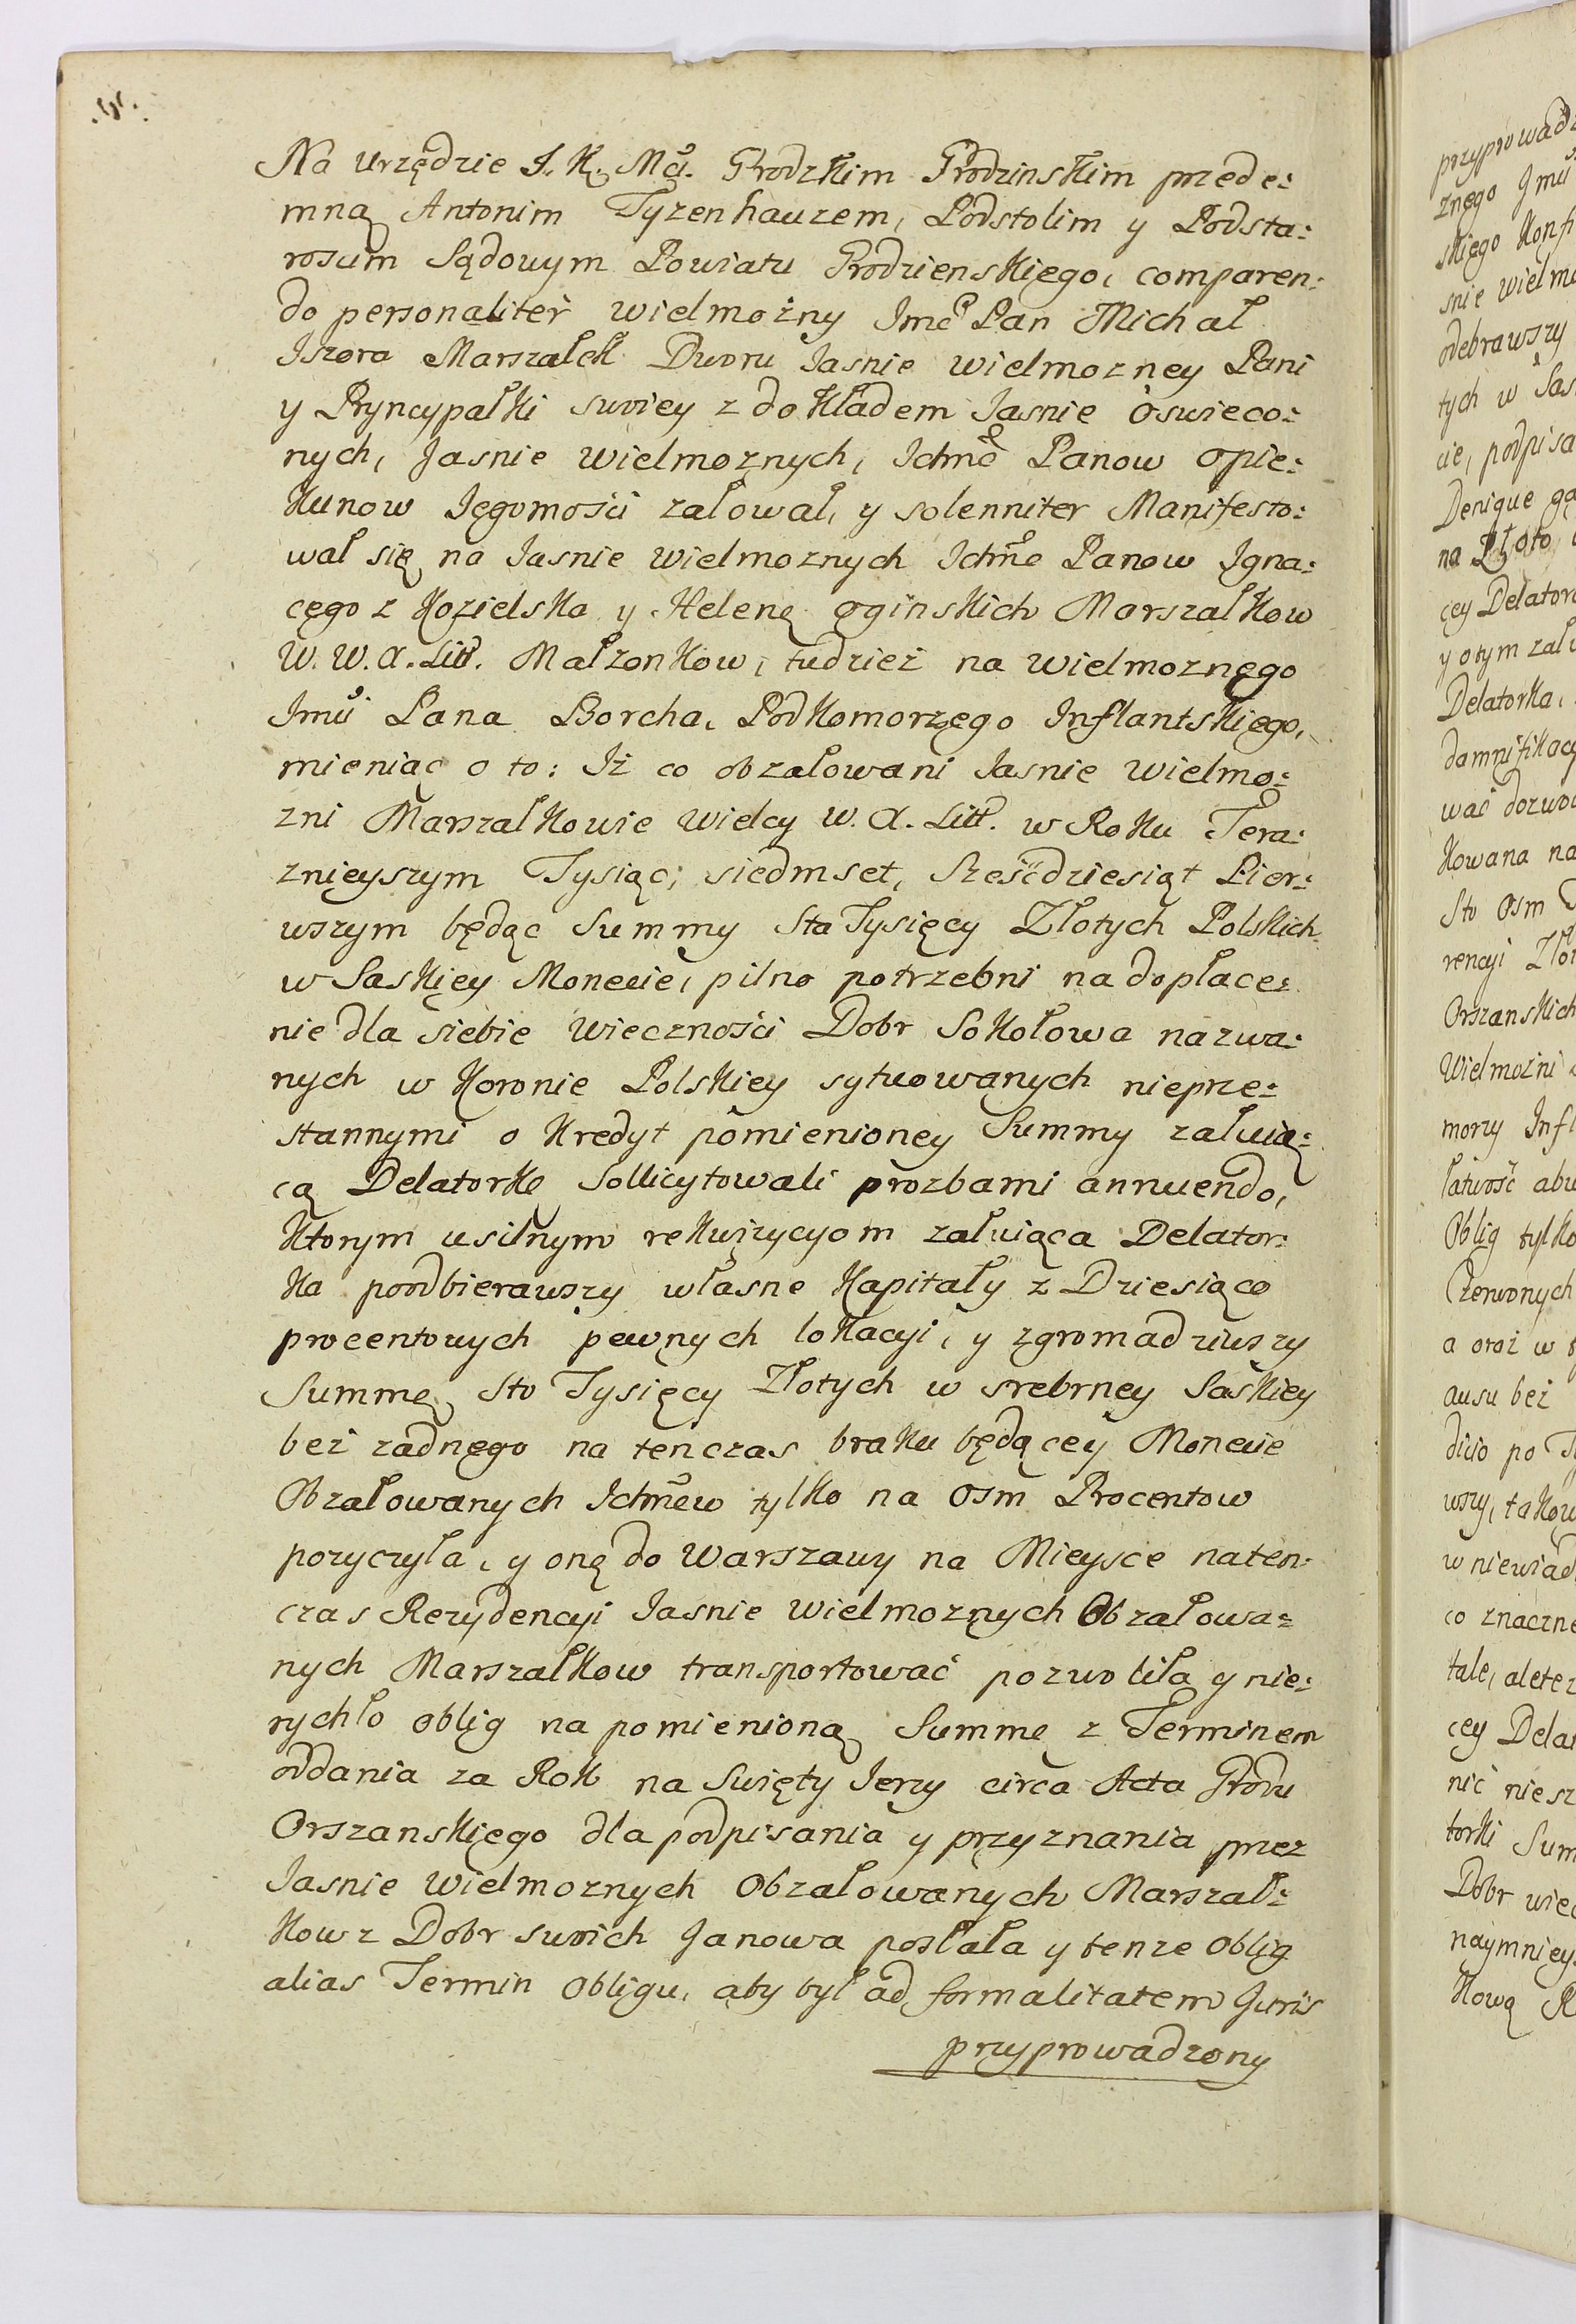 Na Urzędzie J. K. Mći. Grodzkim Grodzinskim przede:
mną Antonim Tyzenhauzem, Podstolim y Podsta:
roscim Sądowym Powiatu Grodzienskięgo, comparen:
do personaliter wielmożny Jmć Pan Michał
Iszora Marszałek Dworu Jasnie wielmozney Pani
y Pryncypałki swoiey z dokładem Jasnie oswieco:
nych, Jasnie wielmoznych, Ichmć Panow opie:
kunow Jęgomości załował, y solenniter Manifesto:
wał się na Jasnie wielmoznych Ichmć Panow Igna:
cęgo z Kozielska y Helenę Oginskich Marszałkow
W. W. X. Litt. Małzonkow, tudzież na wielmoznęgo
Jmći Pana Borcha, Podkomorzęgo Inflantskięgo,
mieniąc o to: Iż co obzałowani Jasnie wielmo:
zni Marszałkowie wielcy W. X. Litt. w Roku Tera:
znięyszym Tysiąc, siedmset, Sześćdziesiąt Pier:
wszym będąc Summy Sta Tysięcy Złotych Polskich
w Saskięy Monecie, pilno potrzebni na dopłace:
nie dla siebie wieczności Dobr Sokołowa nazwa:
nych w Koronie Polskiey sytuowanych nieprze:
stannymi o Kredyt pomienioney Summy załuią:
cą Delatorkę Sollicytowali prozbami annuendo,
Ktorym usilnym rekwizycyom załuiąca Delator:
ka poodbierawszy własne Kapitały z Dziesiąco
procentowych pewnych lokacyi, y zgromadziwszy
Summę Sto Tysięcy Złotych w srebrney Saskiey
beż zadnęgo na tenczas braku będącey Monecie
Obzałowanych Ichmćw tylko na osm Procentow
pozyczyła, y onę do Warszawy na Mieysce naten:
czas Rezydencyi Jasnie wielmoznych Obzałowa:
nych Marszałkow transportować pozwoliła y nie:
rychło oblig na pomienioną Summę z Terminem
oddania za Rok na Swięty Jerzy circa Acta Grodu
Orszanskięgo dla podpisania y przyznania przez
Jasnie wielmoznych Obzałowanych Marszał:
kow z Dobr swoich Janowa posłała y tenze oblig
alias Termin Obligu, aby był ad formalitatem Juris
przyprowadzony
przyprowadz
znęgo Jmći
skięgo Konf
snie wielmo
odebrawszy
tych w Sas
cie, podpisa
Denique gą
na Złoto
cęy Delator
y o tym zału
Delatorka,
damnifikacy
wać dozwo
kowana na
Sto Osm
rencyi Zło
Orszanskich
Wielmożni
morzy Infl
łatwość abu
Oblig tylko
Czerwonych
a oraz w
ausu beż
dicio po
wszy, takow
w niewiad
co znaczne
tale, ale tez
cey Dela
nić niesz
torki Sum
Dobr wiec
naymnięy
kową R